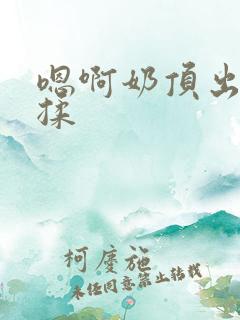 嗯啊奶頂出
揉
柯慶施
未经同意禁止转载